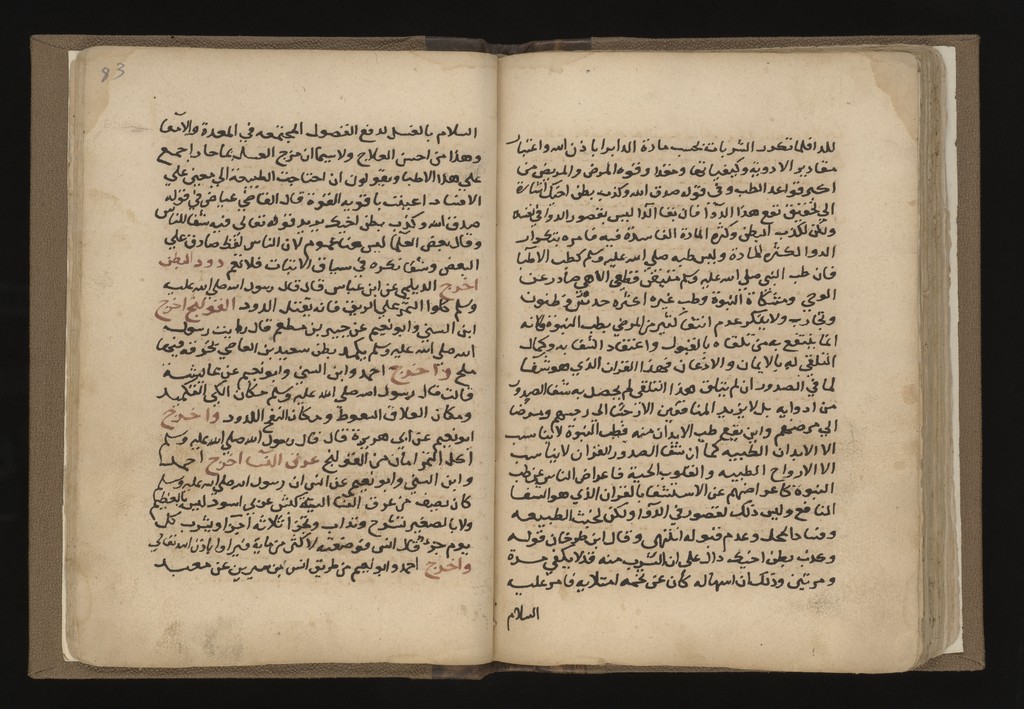 للداء فلما تكرر الشربات بحسب مادة الداء برا باذن الله واعتبار
مقادير الادوية وكيفياتها ومقدار قوة المرض والمريض من
اكبر قواعد الطب وفي قوله صدق الله وكذب بطن اخيك اشارة
الى تحقيق نفع هذا الدوآ فان بقا الدآ ليس بقصور الدوا في نفسه
ولكن لكذب البطن وكثرة المادة الفاسدة فيه فامره بتكرار
الدوا لكثرة المادة وليس طبه صلى الله عليه وسلم كطب الاطبا
فان طب النبي صلى الله عليه وسلم متيقن قطعي الاهي صادر عن
الوحي ومشكاة النبوة وطب غيره اكثره حدس وظنون
وتجارب ولا ينكر عدم انتفاع كثير من المرضي بطب النبوة فانه
انما ينتفع به من تلقاه بالقبول واعتقاد الشفا به وكمال
التلقي له بالايمان والاذعان فهذا القران الذي هو شفا
لما في الصدور ان لم يتلق هذا التلقي لم يحصل به شفا الصدور
من ادوايه بل لا يزيد المنافقين الا رجسا الى رجسهم ومرضا
الى مرضهم واين يقع طب الابدان منه فطب النبوة لا يناسب
الا الابدان الطيبه كما ان شفا الصدور القران لا يناسب
الا الارواح الطيبه والقلوب الحية فاعراض الناس عن طب
النبوة كاعراضهم عن الاستشفا بالقران الذي هو الشفا
النافع وليس ذلك لقصور في الدوا ولكن لخبث الطبيعه
وفساد المحل وعدم قبوله انتهى وقال ابن طرخان قوله
وكذب بطن اخيك دال على ان الشرب منه قد لا يكفي مرة
ومرتين وذلك ان اسهاله كان عن تخمه امتلايه فامره عليه
السلام
83
السلام بالعسل لدفع الفضول المجتمعه في المعدة والامعا
وهذا من احسن العلاج ولا سيما ان مزج العسل بماء حار اجمع
علي هذا الاطبا ويقولون ان احتاجت الطبيعة الى معين علي
الاسهال اعينت ما دامت القوة قال القاضي عياض في قوله
صدق الله وكذب بطن اخيك يريد قوله تعالى فيه شفا للناس
وقال بعض العلما ليس هنا عموم لان الناس لفظ صادق علي
البعض وشفا نكره في سياق الاثبات فلا تعم دود البطن
اخرج الديلمي عن ابن عباس قال قال رسول الله صلى الله عليه
وسلم كلوا التمر على الريق فانه يقتل الدود القولنج اخرج
ابن السني وابو نعيم عن جبير بن مطعم قال رايت رسول
الله صلى الله عليه وسلم يكمد بطن سعيد بن العاصي بخرقة فيها
ملح واخرج احمد وابن السني وابو نعيم عن عايشة
قالت قال رسول الله صلى الله عليه وسلم مكان الكي التكميد
ومكان العلاق السعوط ومكان النفخ اللدود واخرج
ابو نعيم عن ابى هريرة قال قال رسول الله صلى الله عليه وسلم
اكل التمر امان من القولنج عرق النسا اخرج احمد
وابن السني وابو نعيم عن انس ان رسول الله صلى الله عليه وسلم
كان يصف من عرق النسا الية كبش عربي اسود ليس بالعظيم
ولا بالصغير تشرح وتذاب وتجزأ ثلاثة اجزا ويشرب كل
يوم جزء قال انس فوصفته لاكثر من ماية فبراوا باذن الله تعالي
واخرج احمد وابو نعيم من طريق انس بن سيرين عن معبد